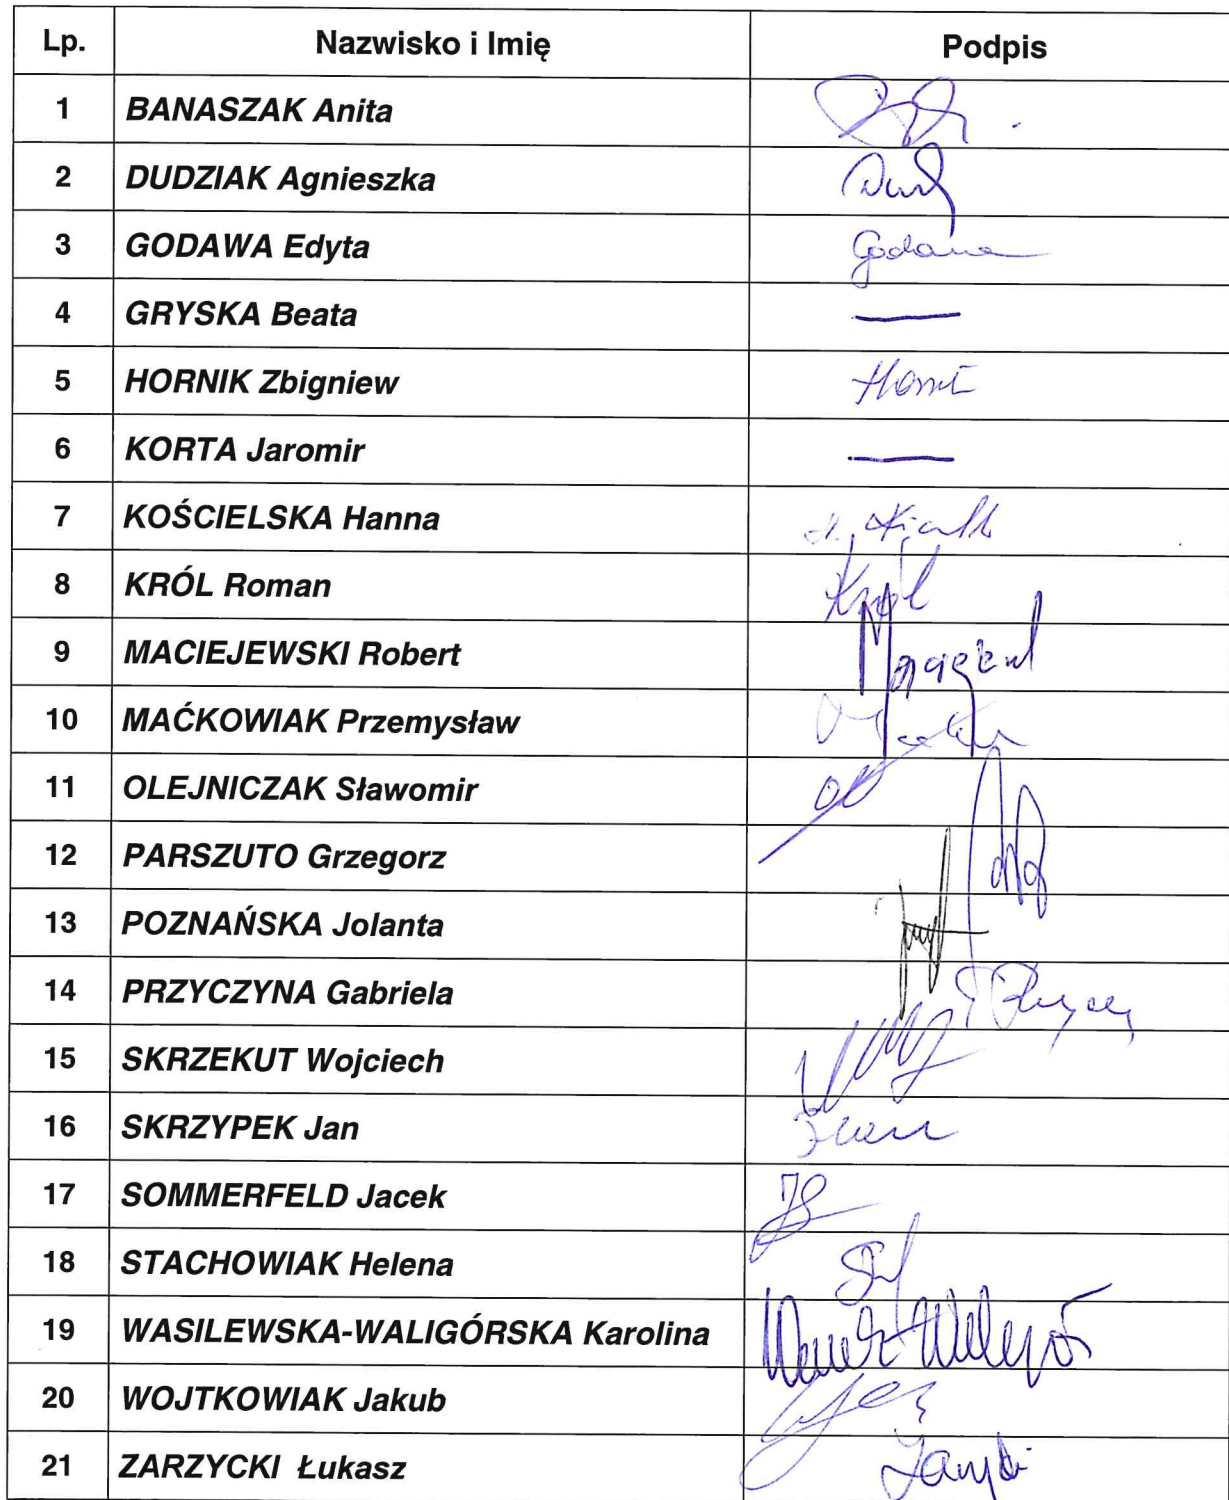 Lp. Nazwisko i Imię Podpis
1 BANASZAK Anita
2 DUDZIAK Agnieszka
3 GODAWA Edyta Godawa
4 GRYSKA Beata —
5 HORNIK Zbigniew
6 KORTA Jaromir —
7 KOŚCIELSKA Hanna
8 KRÓL Roman Król
9 MACIEJEWSKI Robert
10 MAĆKOWIAK Przemysław
11 OLEJNICZAK Sławomir
12 PARSZUTO Grzegorz
13 POZNAŃSKA Jolanta
14 PRZYCZYNA Gabriela
15 SKRZEKUT Wojciech
16 SKRZYPEK Jan
17 SOMMERFELD Jacek JS
18 STACHOWIAK Helena
19 WASILEWSKA-WALIGÓRSKA Karolina
20 WOJTKOWIAK Jakub
21 ZARZYCKI Łukasz